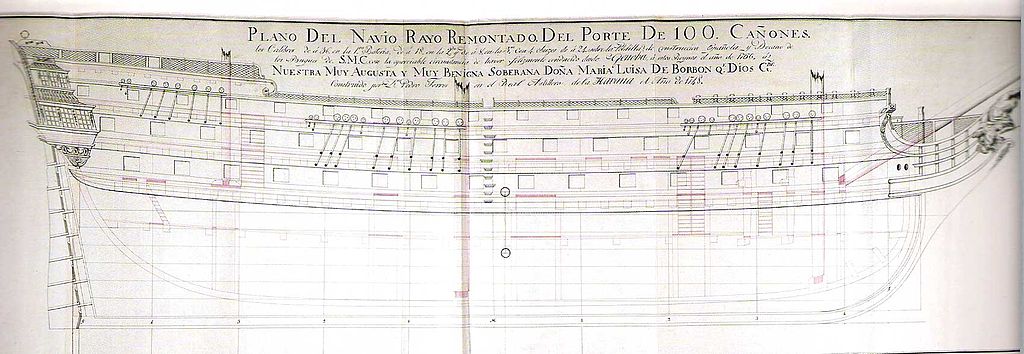 PLANO DEL NAVIO RAYO REMONTADO. DEL PORTE DE 100. CAÑONES.
los Calibres de á 36. en la 1ª Bateria, de á 18. en la 2ª y á 8. en la 3ª Con 4. obuzes de á 24. sobre la Toldilla; de construccion Española y Decano de
los Buques de S.M.C. con la apreciable circunstancia de haver felizmente conducido desde á estos Reynos el año de 1765. á
NUESTRA MUY AUGUSTA Y MUY BENIGNA SOBERANA DOÑA MARIA LUISA DE BORBON Q. DIOS Gᵉ.
Construido por Dⁿ Pedro Torres en el Real Astillero de la Havana el Año de 1748.